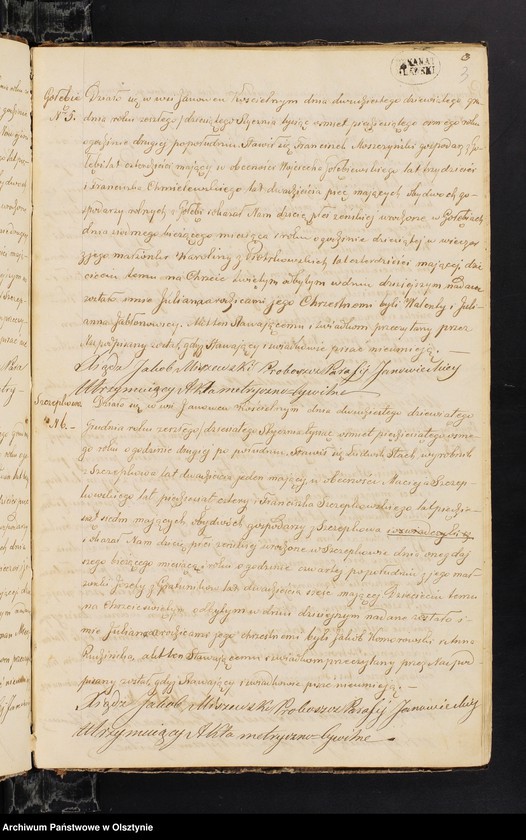 3
Gołebie
N° 5.
Działo się w wsi Janowcu Kościelnym dnia dwudziestego dziewiątego Gru-
dnia roku zeszłego / dziesiątego Stycznia tysiąc ośmset pięćdziesiątego ósmego roku
o godzinie drugiej popołudniu. Stawił się Franciszek Moszczyński gospodarz z Go-
łebi lat czterdzieści mający w obecności Wojciecha Gołebiewskiego lat trzydzieści
i Franciszka Chmielewskiego lat dwadzieścia pięć mających obydwóch go-
spodarzy rolnych z Gołebi i okazał Nam dziecię płci żeńskiej urodzone w Gołebiach
dnia siódmego bieżącego miesiąca i roku o godzinie dziesiątej w wieczór
z jego małżonki Karoliny z Piotrkowskich lat czterdzieści mającej. Dzie-
cięciu temu na Chrzcie świętym odbytym w dniu dzisiejszym nadane
zostało imie Julianna a rodzicami jego Chrzestnemi byli Walenty i Juli-
anna Jabłonowscy. Akt ten stawającemu i świadkom przeczytany przez
Nas podpisany został, gdyż stawający i świadkowie pisać nieumieją. —
Xiądz Jakób Mierzewski Proboszcz Parafij Janowieckiej
Utrzymujący Akta metryczno-Cywilne
Szczepkowo
N° 6. —
Działo się w wsi Janowcu Kościelnym dnia dwudziestego dziewiątego
Grudnia roku zeszłego / dziesiątego Stycznia tysiąc ośmset pięćdziesiątego ósme-
go roku o godzinie drugiej po południu. Stawił się Ludwik Stach wyrobnik
z Szczepkowa lat dwadzieścia jeden mający w obecności Macieja Szczep-
kowskiego lat pięćdziesiąt cztery i Franciszka Szczepkowskiego lat pięćdzie-
siąt siedm mających obydwóch gospodarzy z Szczepkowa
i okazał Nam dziecię płci żeńskiej urodzone w Szczepkowie dnia onegdaj-
szego bieżącego miesiąca roku o godzinie czwartej popołudniu z jego mał-
żonki Józefy z lat dwadzieścia sześć mającej. Dziecięciu temu
na Chrzcie świętym odbytym w dniu dzisiejszym nadane zostało i-
mie Julianna a rodzicami jego chrzestnemi byli Jakób Komorowski i Anna
Rudzińska, akt ten stawającemu i świadkom przeczytany przez Nas pod-
pisany został, gdyż stawający i świadkowie pisać nieumieją. —
Xiądz Jakób Mierzewski Proboszcz Parafij Janowieckiej
Utrzymujący Akta metryczno-Cywilne —
Archiwum Państwowe w Olsztynie